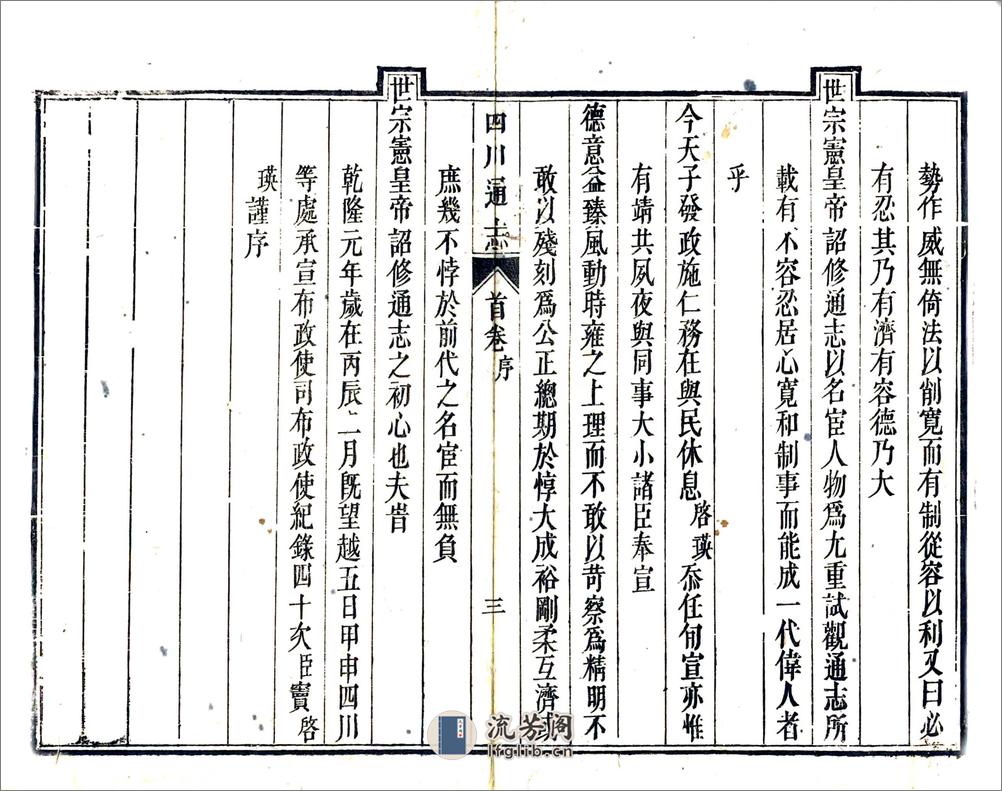 勢作威無倚法以削寬而有制從容以利又曰必
有忍其乃有濟有容德乃大
世宗憲皇帝詔修通志以名宦人物爲尤重試觀通志所
載有不容忍居心寬和制事而能成一代偉人者
乎
今天子發政施仁務在與民休息啓瑛忝任旬宣亦惟
有靖共夙夜與同事大小諸臣奉宣
德意益臻風動時雍之上理而不敢以苛察爲精明不
敢以殘刻爲公正總期於惇大成裕剛柔互濟
四川通志 首卷 序 三
庶幾不悖於前代之名宦而無負
世宗憲皇帝詔修通志之初心也夫旹
乾隆元年歲在丙辰二月旣望越五日甲申四川
等處承宣布政使司布政使紀錄四十次臣竇啓
瑛謹序
流芳阁
lfglib.cn